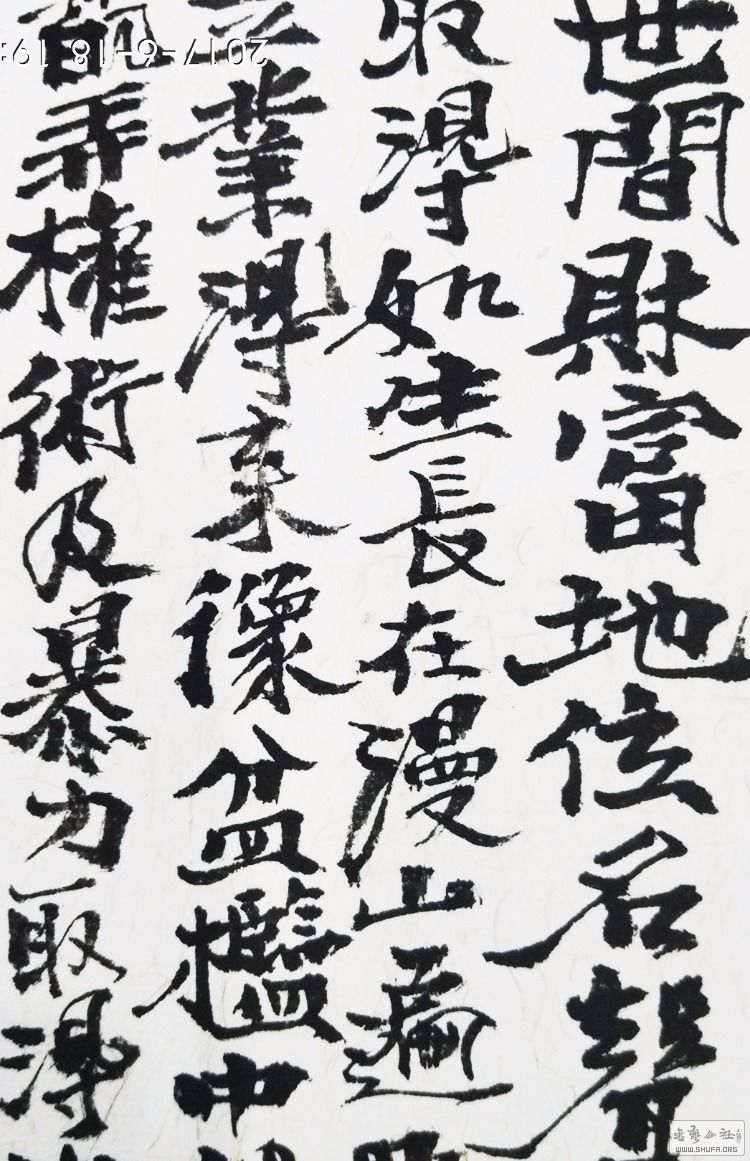 世間財富地位名聲
取得如生長在漫山遍
立業得来像盆檻中
弄權術及暴力取得
2017-6-18 19
書藝公社
WWW.SHUFA.ORG